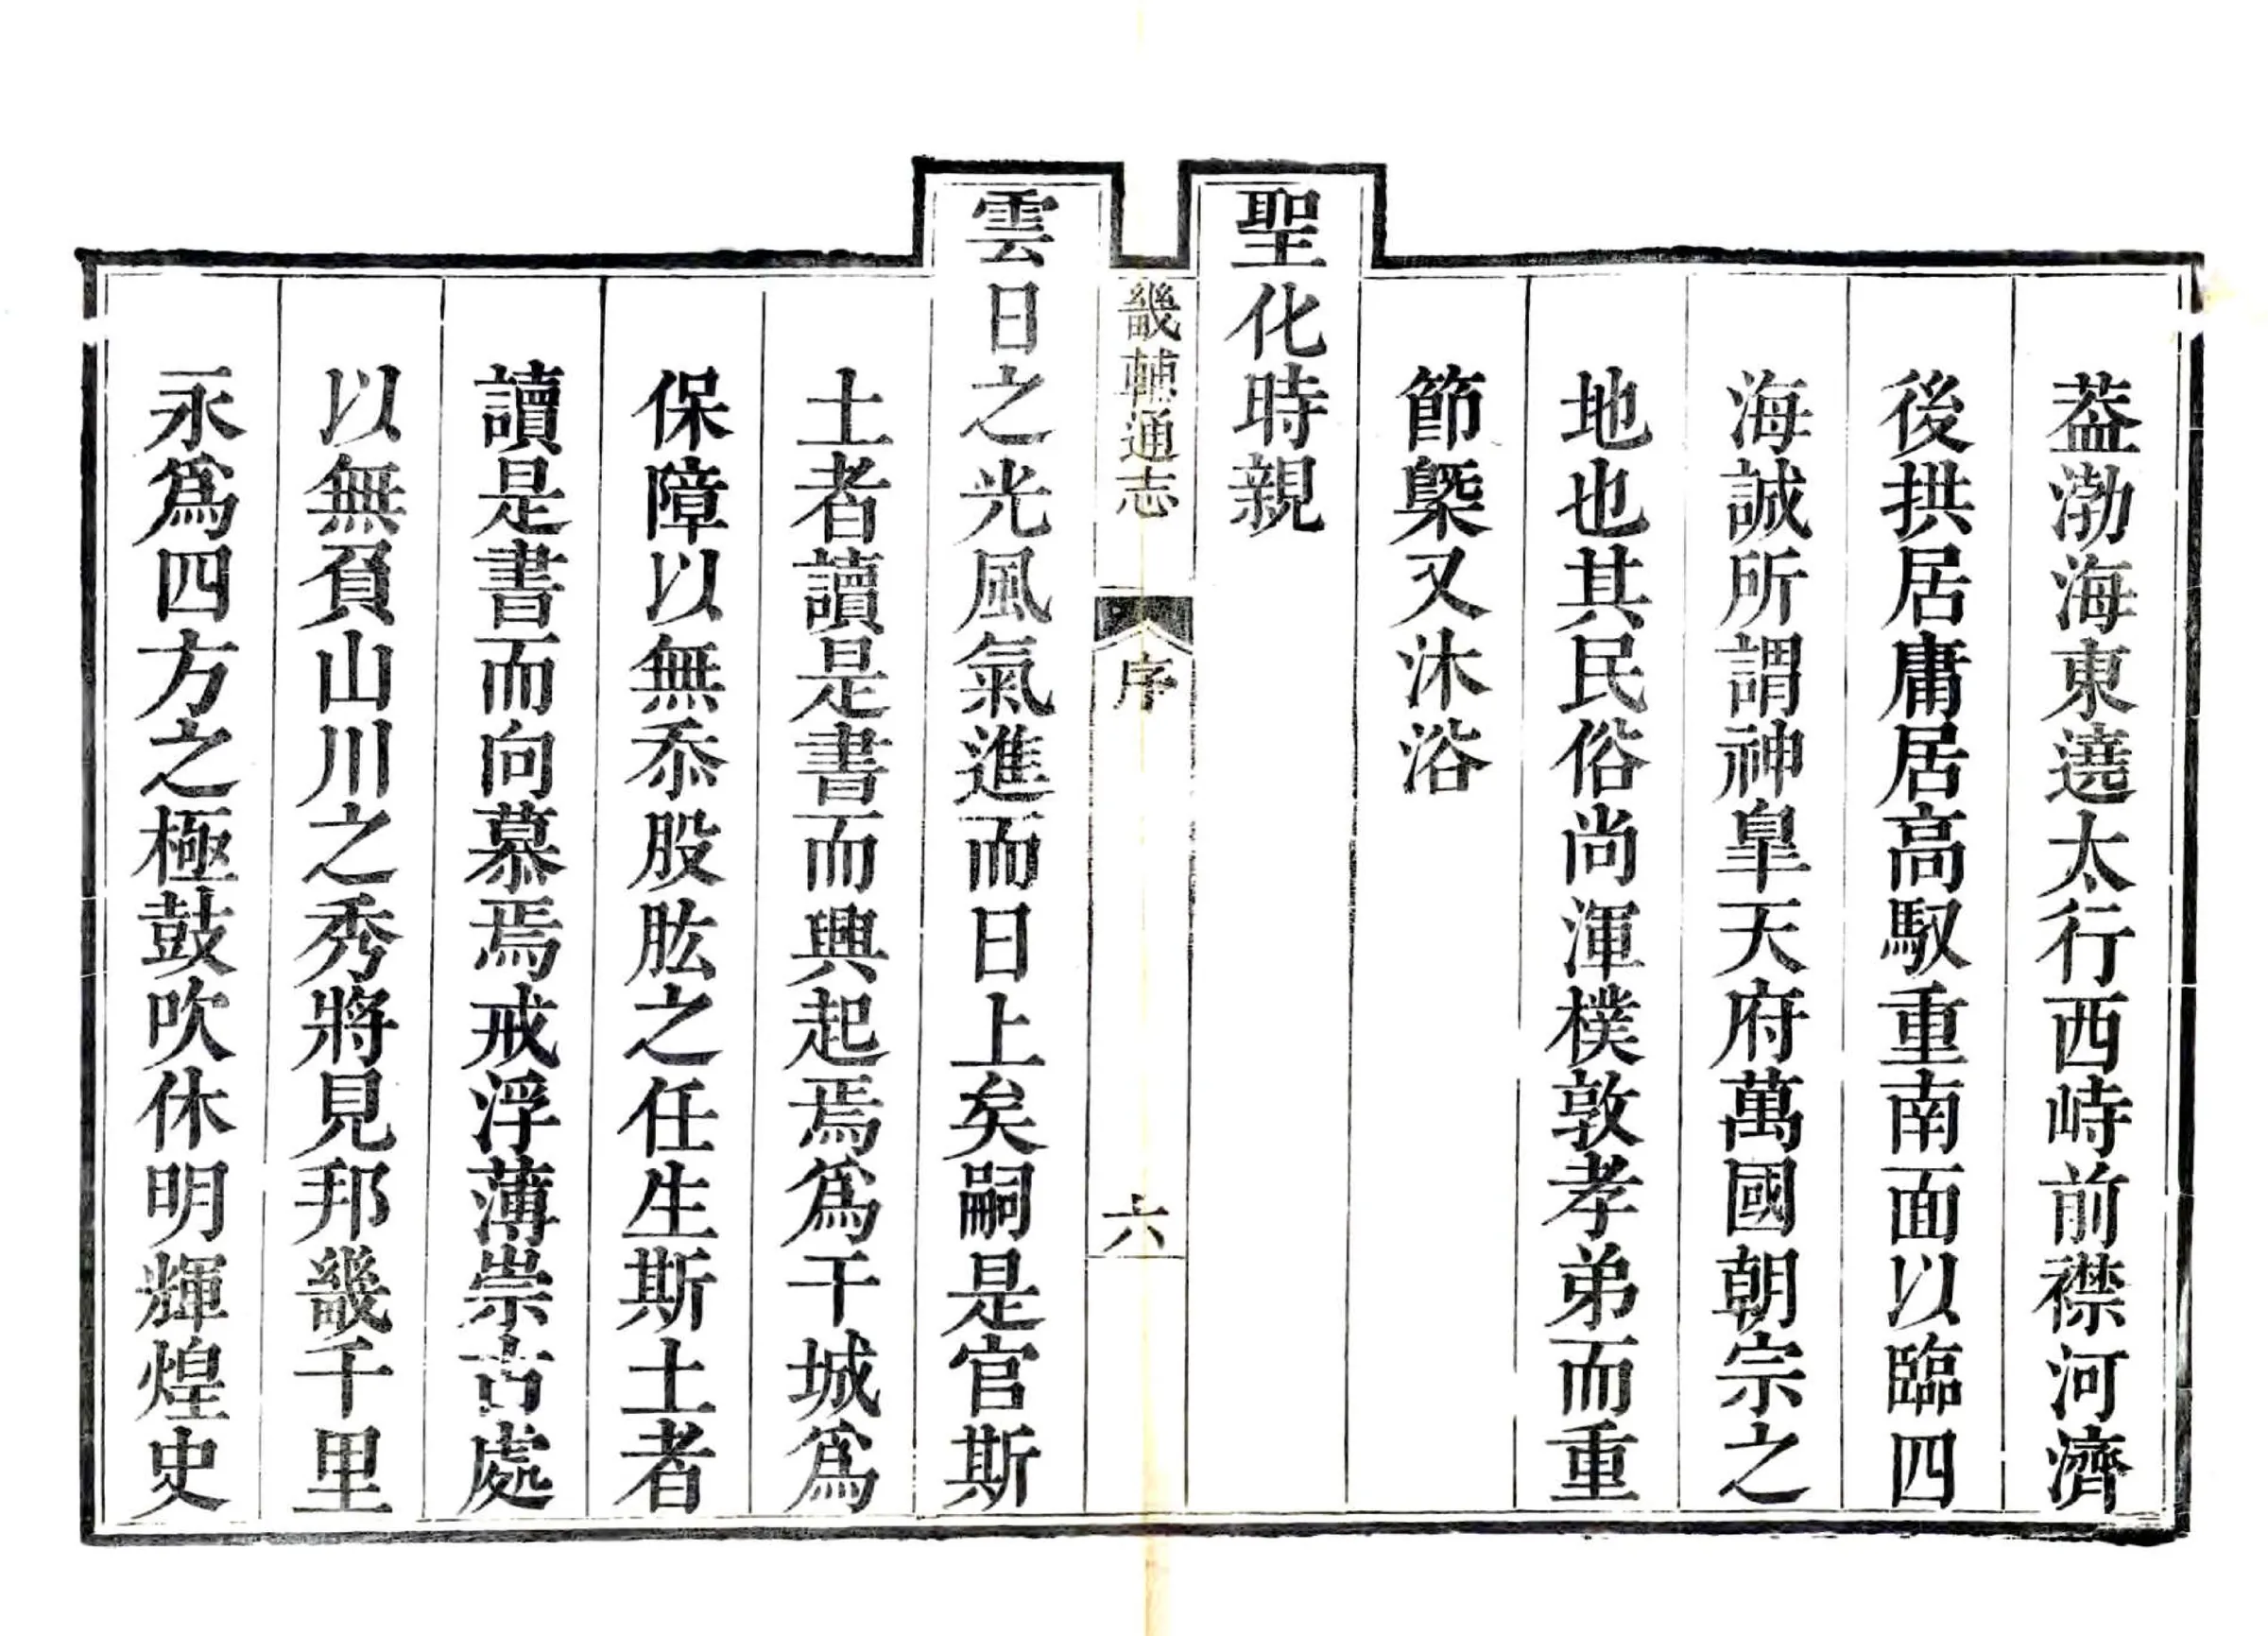 葢渤海東遶太行西峙前襟河濟
後拱居庸居高馭重南面以臨四
海誠所謂神臯天府萬國朝宗之
地也其民俗尚渾樸敦孝弟而重
節槩又沐浴
聖化時親
畿輔通志
序
六
雲日之光風氣進而日上矣嗣是官斯
土者讀是書而興起焉爲干城爲
保障以無忝股肱之任生斯土者
讀是書而向慕焉戒浮薄崇古處
以無負山川之秀將見邦畿千里
永爲四方之極鼓吹休明輝煌史